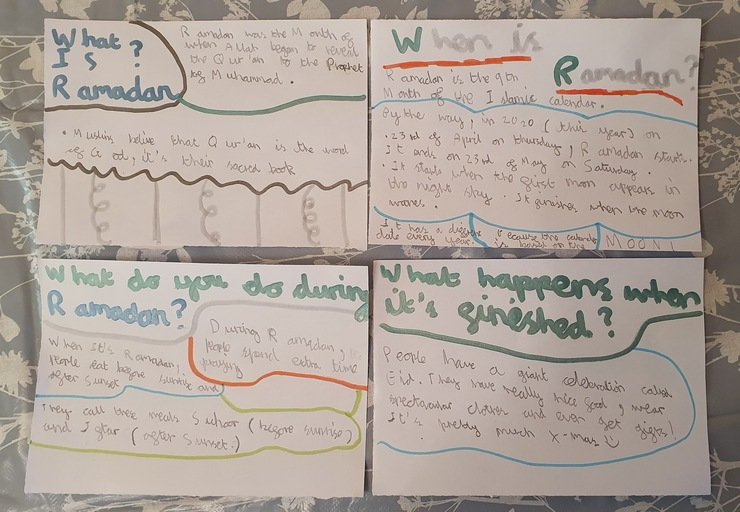 What?
Is
Ramadan
Ramadan was the Month of
when Allah began to reveal
the Qur'an to the Prophet
of Muhammad.
• Muslims belive that Qur'an is the word
of God, it's their sacred book
When is
Ramadan?
Ramadan is the 9th
Month of the Islamic calendar.
By the way, in 2020 (this year) on
• 23rd of April on thursday, Ramadan starts.
It ends on 23rd of May on Saturday.
• It starts when the first moon appears in
the night sky. It finishes when the moon
wanes.
It has a different because the calendar
date every year. is based on the
MOON!
What do you do during
Ramadan?
During Ramadan,
People spend extra time
praying
When it's Ramadan,
People eat before sunrise and
after sunset
They call these meals Suhoor (before sunrise)
and Iftar (after sunset.)
What happens when
it's fineshed?
People have a giant celebration called
Eid. They have really nice food, wear
spectacular clothes and even get gifts!
It's pretty much X-mas